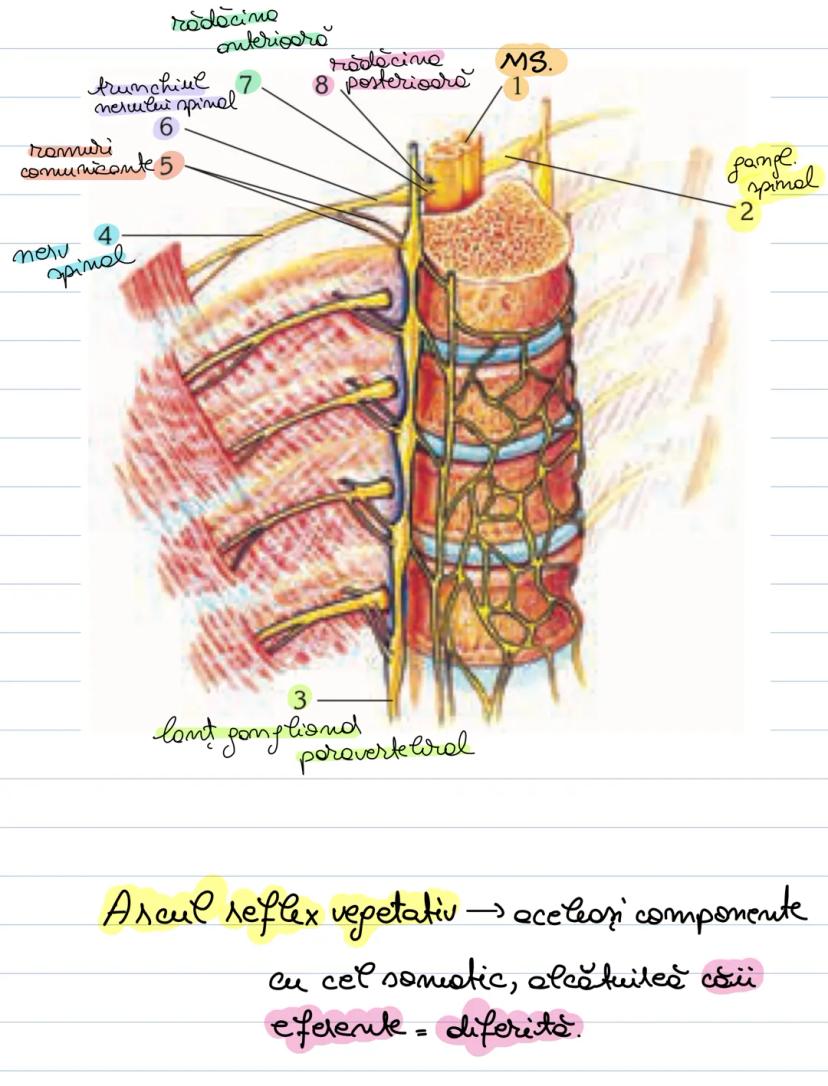 rădăcina
anterioară
7
rădăcina
posterioară
8
MS.
1
trunchiul
nervului spinal
6
ramuri
comunicante 5
gangl.
spinal
2
4
nerv
spinal
3
lanț ganglionar
paravertebral
Arcul reflex vegetativ → aceleași componente
cu cel somatic, alcătuirea căii
eferente = diferită.